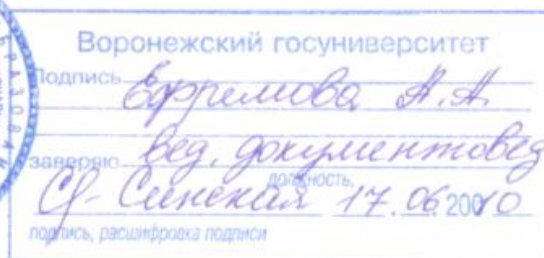 Воронежский госуниверситет
Подпись Ефремова А.А.
заверяю вед. документовед
должность,
Синская 17.06 2010
подпись, расшифровка подписи